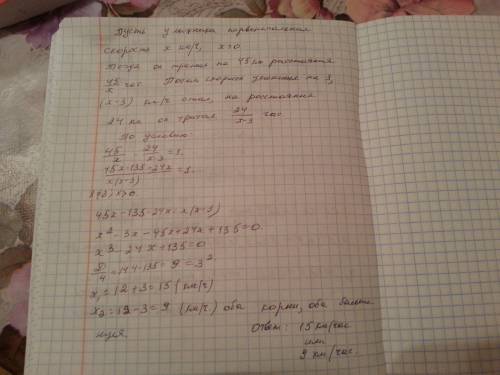 Пусть у лыжника первоначальная
скорость x км/ч, x>0
Тогда он тратил на 45 км расстояния
45/x час. После скорость уменьшил на 3,
(x-3) км/ч стал, на расстояния
24 км он тратил 24/x-3 час
По условию
45/x - 24/x-3 = 1
45x-135-24x/x(x-3) = 1
x≠3; x>0
45x-135-24x=x(x-3)
x²-3x-45x+24x+135=0
x²-24x+135=0
D/4=144-135=9=3²
x₁=12+3=15 (км/ч)
x₂=12-3=9 (км/ч) оба корни, оба больше
нуля.
Ответ: 15 км/час
или
9 км/час